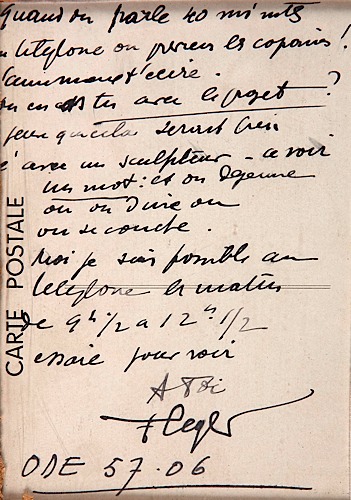 Quand on parle 40 minutes
téléphone on previent les copains !
où en es tu avec le projet ?
je crois que cela serait bien
avec un sculpteur - a voir
un mot : et on déjeune
ou on dine ou
on se couche.
Moi je suis possible au
telephone les matins
de 9h 1/2 a 12hs 1/2
essaie pour voir
A Toi
FLeger
ODE 57.06
CARTE POSTALE